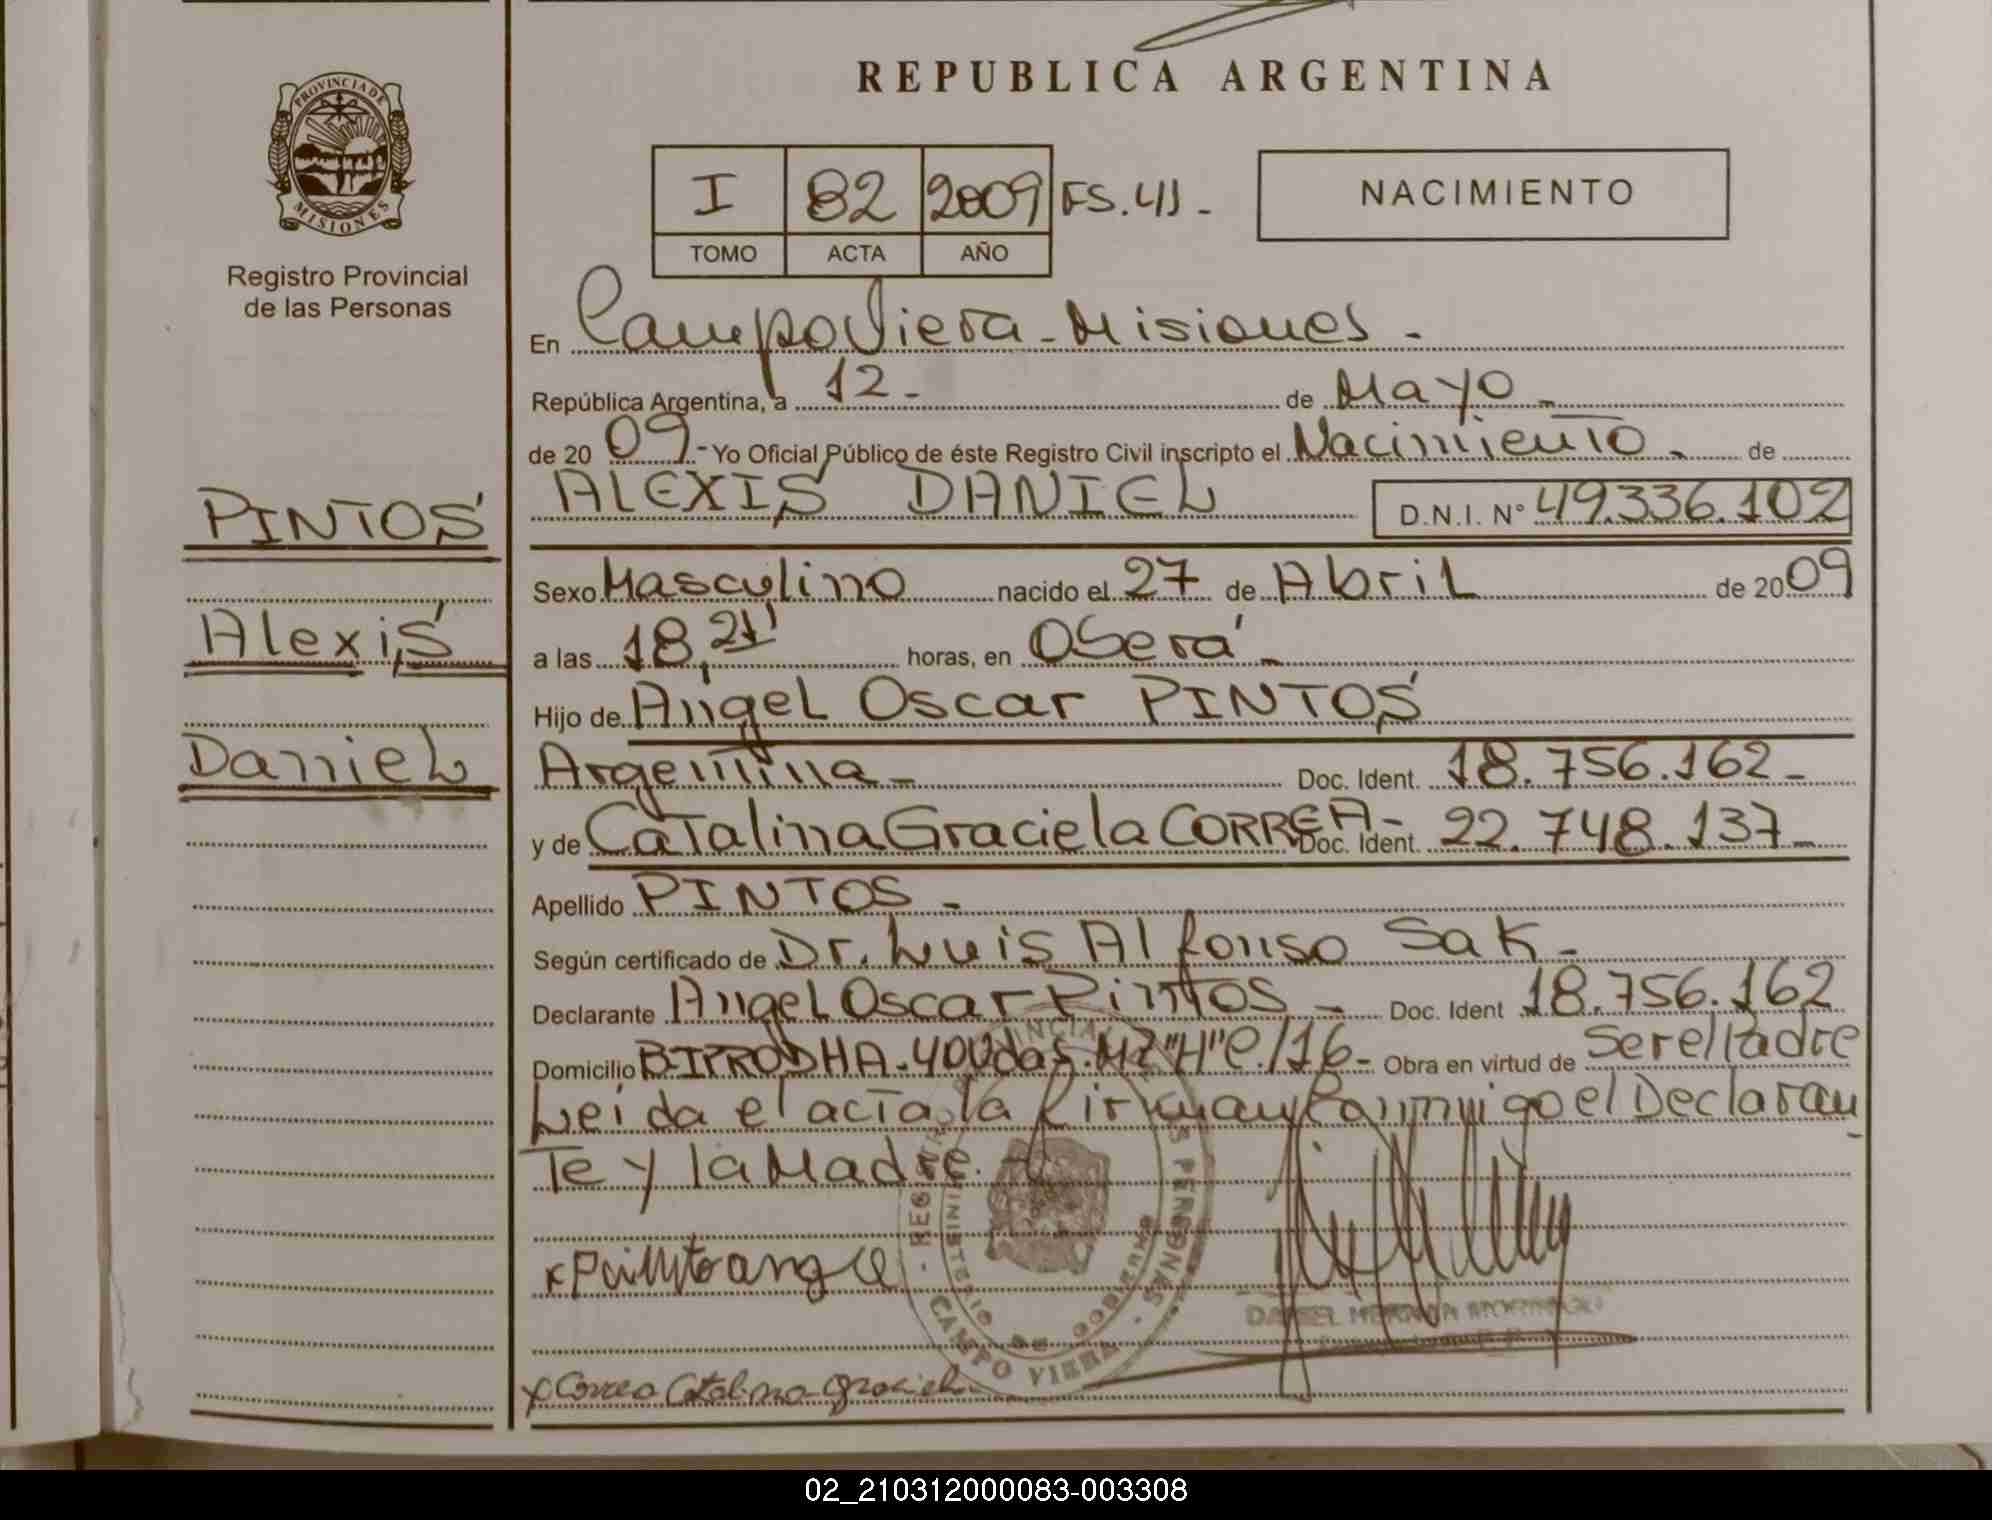 REPUBLICA ARGENTINA
PROVINCIA DE
MISIONES
Registro Provincial
de las Personas
I 82 2009 FS.41-
TOMO ACTA AÑO
NACIMIENTO
En Campo Viera - Misiones -
República Argentina, a 12- de Mayo -
de 20 09- Yo Oficial Público de éste Registro Civil inscripto el Nacimiento - de
ALEXIS DANIEL D.N.I. N° 49.336.102
PINTOS
Alexis
Daniel
Sexo Masculino nacido el 27 de Abril de 20 09
a las 18,21' horas, en Oberá -
Hijo de Angel Oscar PINTOS
Argentina - Doc. Ident. 18.756.162-
y de Catalina Graciela CORREA- Doc. Ident. 22.748.137-
Apellido PINTOS -
Según certificado de Dr. Luis Alfonso Sak -
Declarante Angel Oscar Pintos - Doc. Ident 18.756.162
Domicilio B-IPRODHA-40Vdas.MZ"H"C/16- Obra en virtud de Ser el Padre
Leida el acta la firman conmigo el Declaran
te y la Madre.
x angel
CAMPO VIERA
MINISTERIO DE GOBIERNO
DANIEL
x Correa Catalina Graciela
02_210312000083-003308